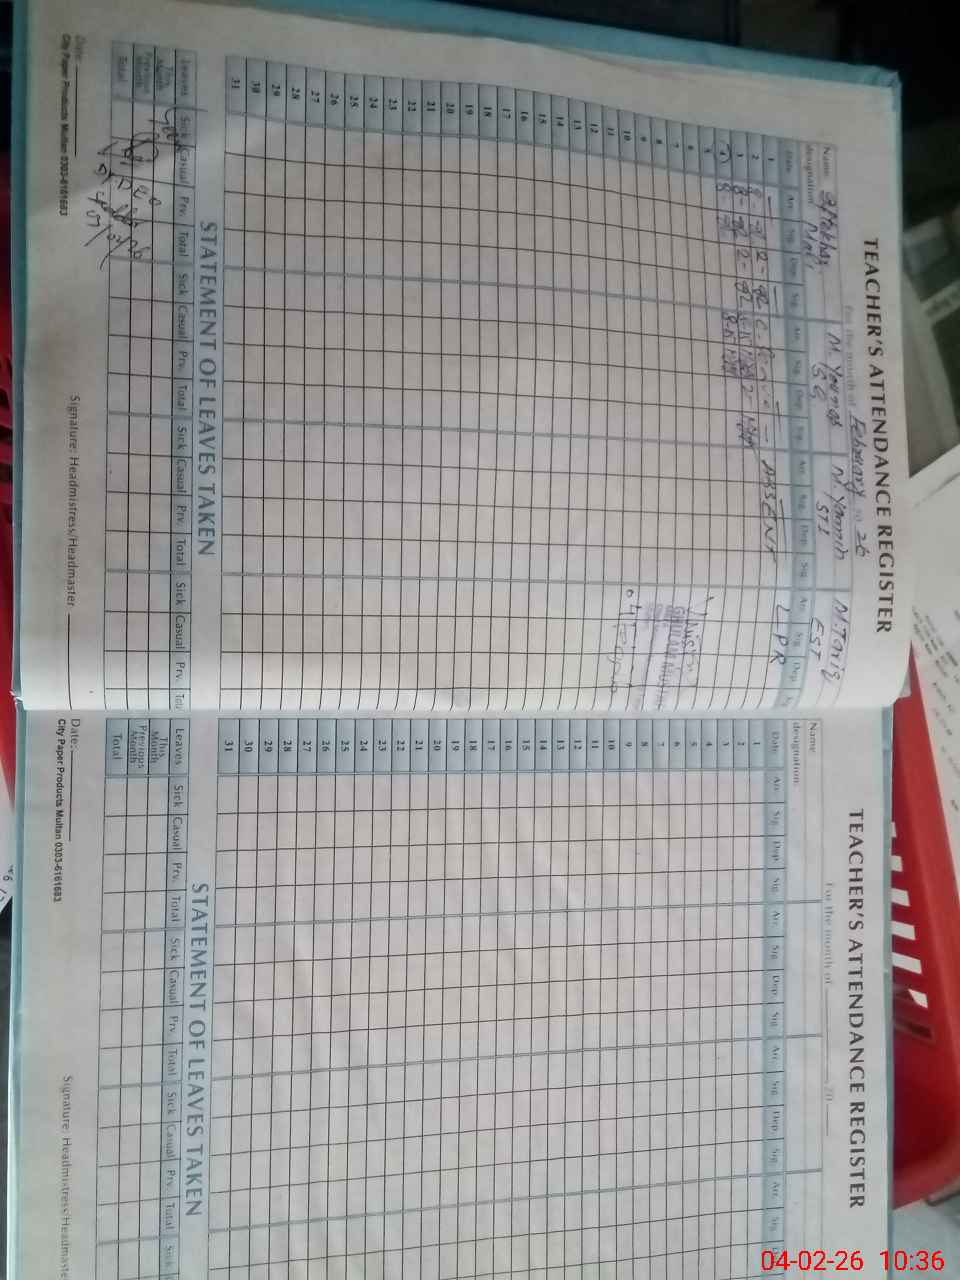 TEACHER'S ATTENDANCE REGISTER
For the month of February 20 26
Name M. Younas M. Yamin M. Tariq
designation Mali SG STI EST
Date Arr. Sig. Dep. Sig. Arr. Sig. Dep. Sig. Arr. Sig. Dep. Sig. Arr. Sig. Dep.
1 LPR
2 C. Leave ABSENT
3
4
5
6
7
8
9
10
11
12
13
14
15
16
17
18
19
20
21
22
23
24
25
26
27
28
29
30
31
STATEMENT OF LEAVES TAKEN
Leaves Sick Casual Prv. Total Sick Casual Prv. Total Sick Casual Prv. Total Sick Casual Prv.
This Month
Previous Month
Total
Date:
Signature: Headmistress/Headmaster
City Paper Products Multan 0303-6161683
TEACHER'S ATTENDANCE REGISTER
For the month of 20
Name
designation.
Date Arr. Sig. Dep. Sig. Arr. Sig. Dep. Sig. Arr. Sig. Dep. Sig. Arr. Sig.
1
2
3
4
5
6
7
8
9
10
11
12
13
14
15
16
17
18
19
20
21
22
23
24
25
26
27
28
29
30
31
STATEMENT OF LEAVES TAKEN
Leaves Sick Casual Prv. Total Sick Casual Prv. Total Sick Casual Prv. Total Sick
This Month
Previous Month
Total
Date:
Signature: Headmistress/Headmaste
City Paper Products Multan 0303-6161683
04-02-26 10:36